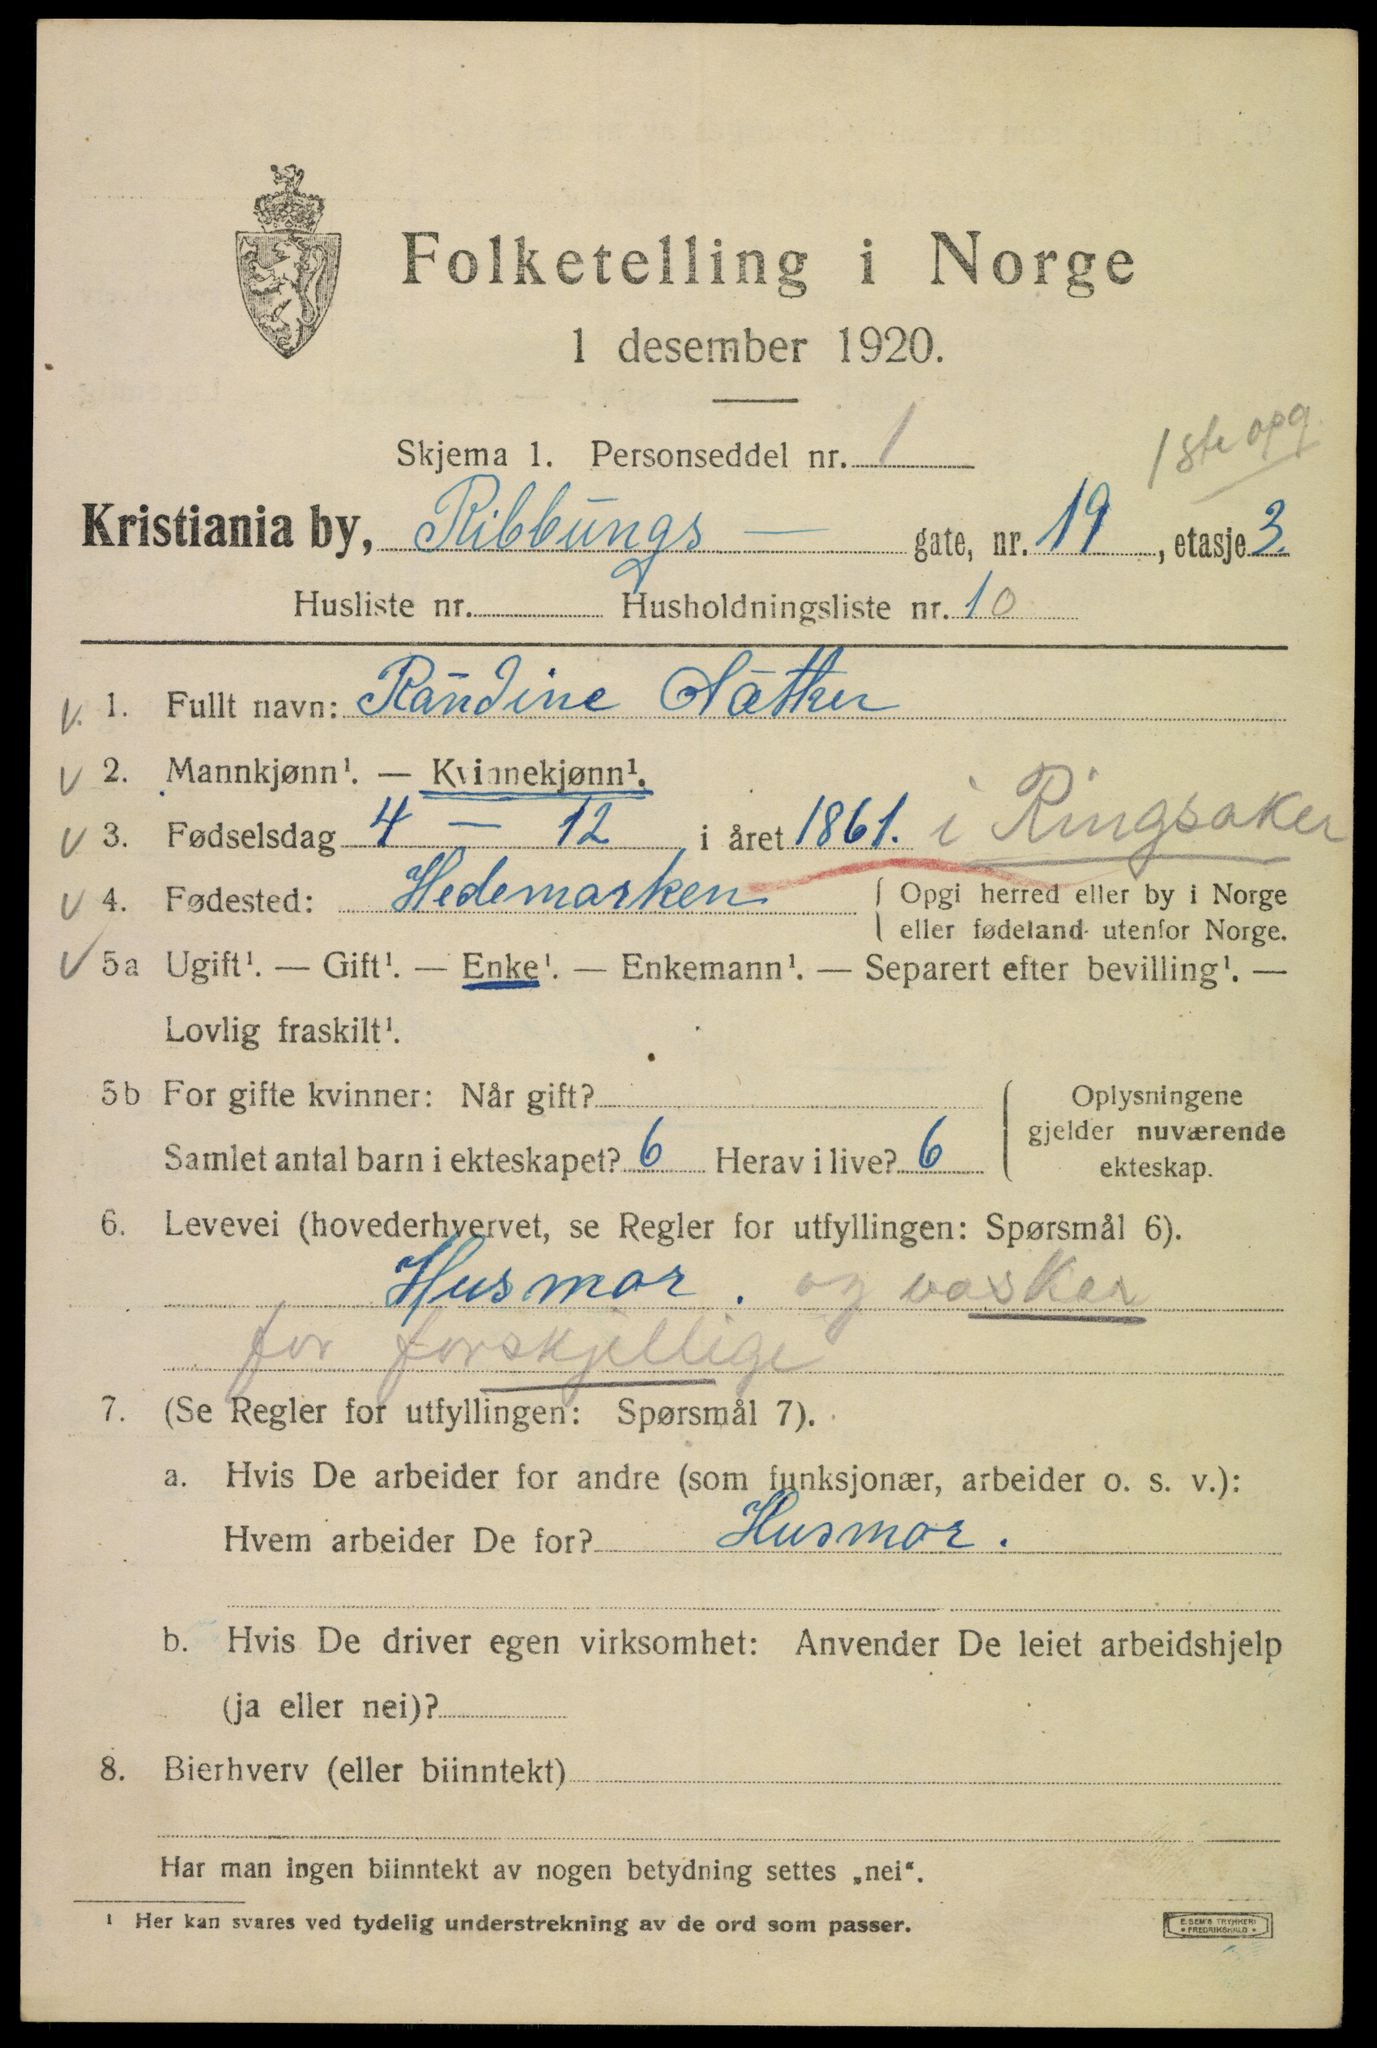 Folketelling i Norge
1 desember 1920.
Skjema 1. Personseddel nr. 1
1ste opg.
Kristiania by, Ribbungs — gate, nr. 19, etasje 3.
Husliste nr. Husholdningsliste nr. 10
v. 1. Fullt navn: Randine Sætter
v 2. Mannkjønn¹. — Kvinnekjønn¹.
v 3. Fødselsdag 4 — 12 i året 1861. i Ringsaker
v 4. Fødested: Hedemarken { Opgi herred eller by i Norge
eller fødeland utenfor Norge.
v 5a Ugift¹. — Gift¹. — Enke¹. — Enkemann¹. — Separert efter bevilling¹. —
Lovlig fraskilt¹.
5b For gifte kvinner: Når gift? { Oplysningene
gjelder nuværende
Samlet antal barn i ekteskapet? 6 Herav i live? 6
ekteskap.
6. Levevei (hovederhvervet, se Regler for utfyllingen: Spørsmål 6).
Husmor. og vasker
for forskjellige
7. (Se Regler for utfyllingen: Spørsmål 7).
a. Hvis De arbeider for andre (som funksjonær, arbeider o. s. v.):
Hvem arbeider De for? Husmor.
b. Hvis De driver egen virksomhet: Anvender De leiet arbeidshjelp
(ja eller nei)?
8. Bierhverv (eller biinntekt)
Har man ingen biinntekt av nogen betydning settes „nei“.
¹ Her kan svares ved tydelig understrekning av de ord som passer.
E. SEM'S TRYKKERI
FREDRIKSHALD